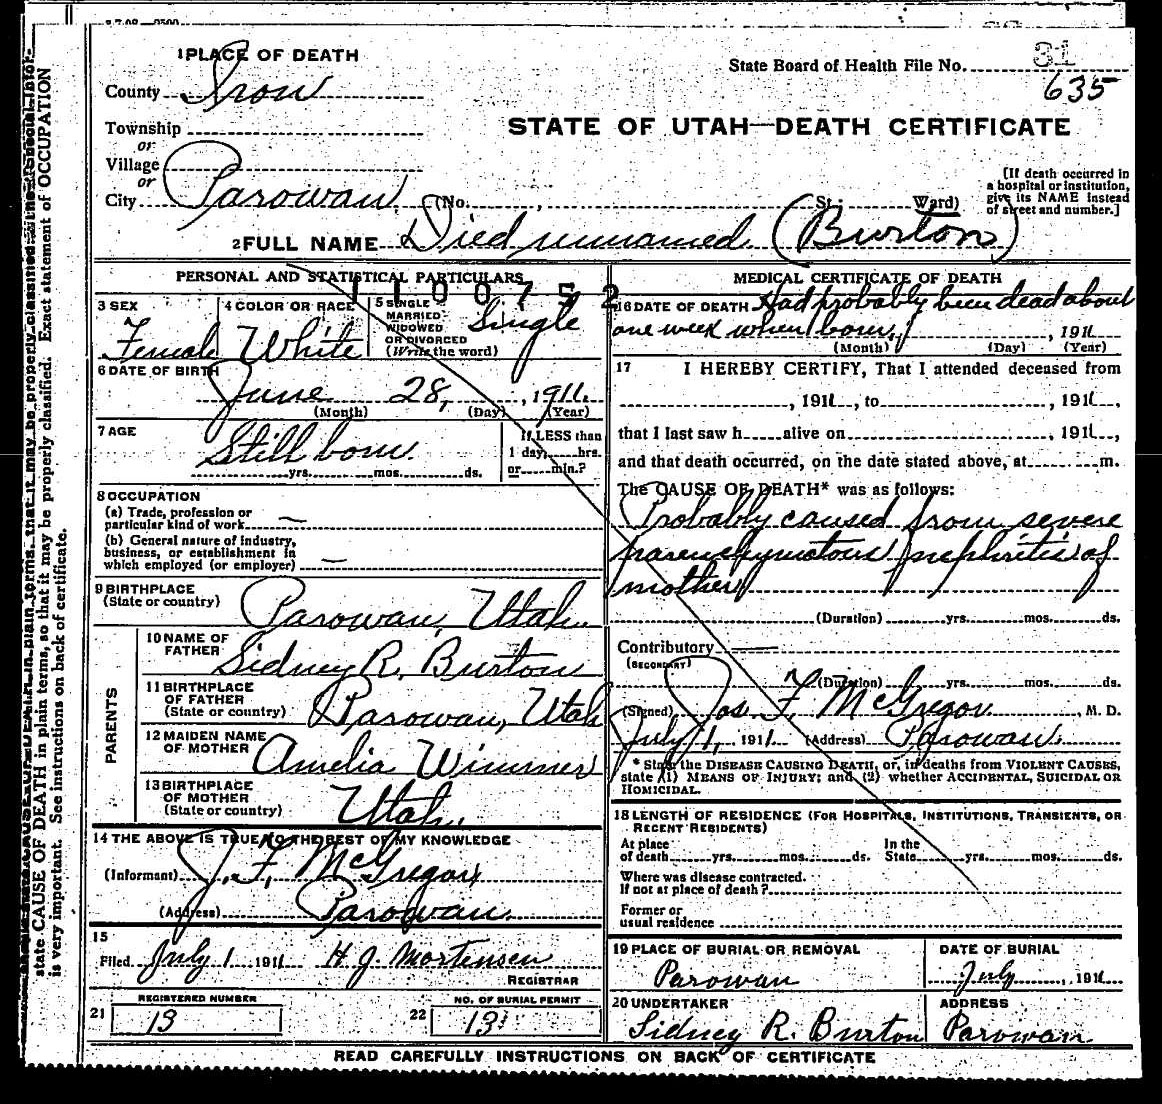 1 PLACE OF DEATH
State Board of Health File No. 31
635
County Iron
Township
or
Village
or
City Parowan (No. , St.; Ward)
STATE OF UTAH—DEATH CERTIFICATE
[If death occurred in
a hospital or institution,
give its NAME instead
of street and number.]
2 FULL NAME Died unnamed (Burton)
PERSONAL AND STATISTICAL PARTICULARS
1100752
3 SEX
Female
4 COLOR OR RACE
White
5 SINGLE
MARRIED
WIDOWED
OR DIVORCED
(Write the word)
Single
6 DATE OF BIRTH
June 28, 1911.
(Month) (Day) (Year)
7 AGE
Still born.
yrs. mos. ds.
If LESS than
1 day, hrs.
or min.?
8 OCCUPATION
(a) Trade, profession or
particular kind of work —
(b) General nature of industry,
business, or establishment in
which employed (or employer) —
9 BIRTHPLACE
(State or country)
Parowan, Utah.
PARENTS
10 NAME OF
FATHER
Sidney R. Burton
11 BIRTHPLACE
OF FATHER
(State or country)
Parowan, Utah
12 MAIDEN NAME
OF MOTHER
Amelia Wimmer
13 BIRTHPLACE
OF MOTHER
(State or country)
Utah.
14 THE ABOVE IS TRUE TO THE BEST OF MY KNOWLEDGE
(Informant) J. F. McGregor
(Address) Parowan.
15
Filed July 1 1911 H J. Mortensen
REGISTRAR
21 REGISTERED NUMBER
13
22 NO. OF BURIAL PERMIT
13
MEDICAL CERTIFICATE OF DEATH
16 DATE OF DEATH Had probably been dead about
one week when born. , 1911
(Month) (Day) (Year)
17 I HEREBY CERTIFY, That I attended deceased from
, 1911 , to , 191 ,
that I last saw h alive on , 191 ,
and that death occurred, on the date stated above, at m.
The CAUSE OF DEATH* was as follows:
Probably caused from severe
parenchymatous nephritis of
mother
(Duration) yrs. mos. ds.
Contributory —
(SECONDARY)
(Duration) yrs. mos. ds.
(Signed) Jos. F. McGregor , M. D.
July 1, 1911 (Address) Parowan.
* State the DISEASE CAUSING DEATH, or, in deaths from VIOLENT CAUSES,
state (1) MEANS OF INJURY; and (2) whether ACCIDENTAL, SUICIDAL OR
HOMICIDAL.
18 LENGTH OF RESIDENCE (FOR HOSPITALS, INSTITUTIONS, TRANSIENTS, OR
RECENT RESIDENTS)
At place
of death yrs. mos. ds.
In the
State yrs. mos. ds.
Where was disease contracted.
If not at place of death?
Former or
usual residence
19 PLACE OF BURIAL OR REMOVAL
Parowan
DATE OF BURIAL
July , 1911
20 UNDERTAKER
Sidney R. Burton
ADDRESS
Parowan.
READ CAREFULLY INSTRUCTIONS ON BACK OF CERTIFICATE
state CAUSE OF DEATH in plain terms, so that it may be properly classified. Exact statement of OCCUPATION
is very important. See instructions on back of certificate.